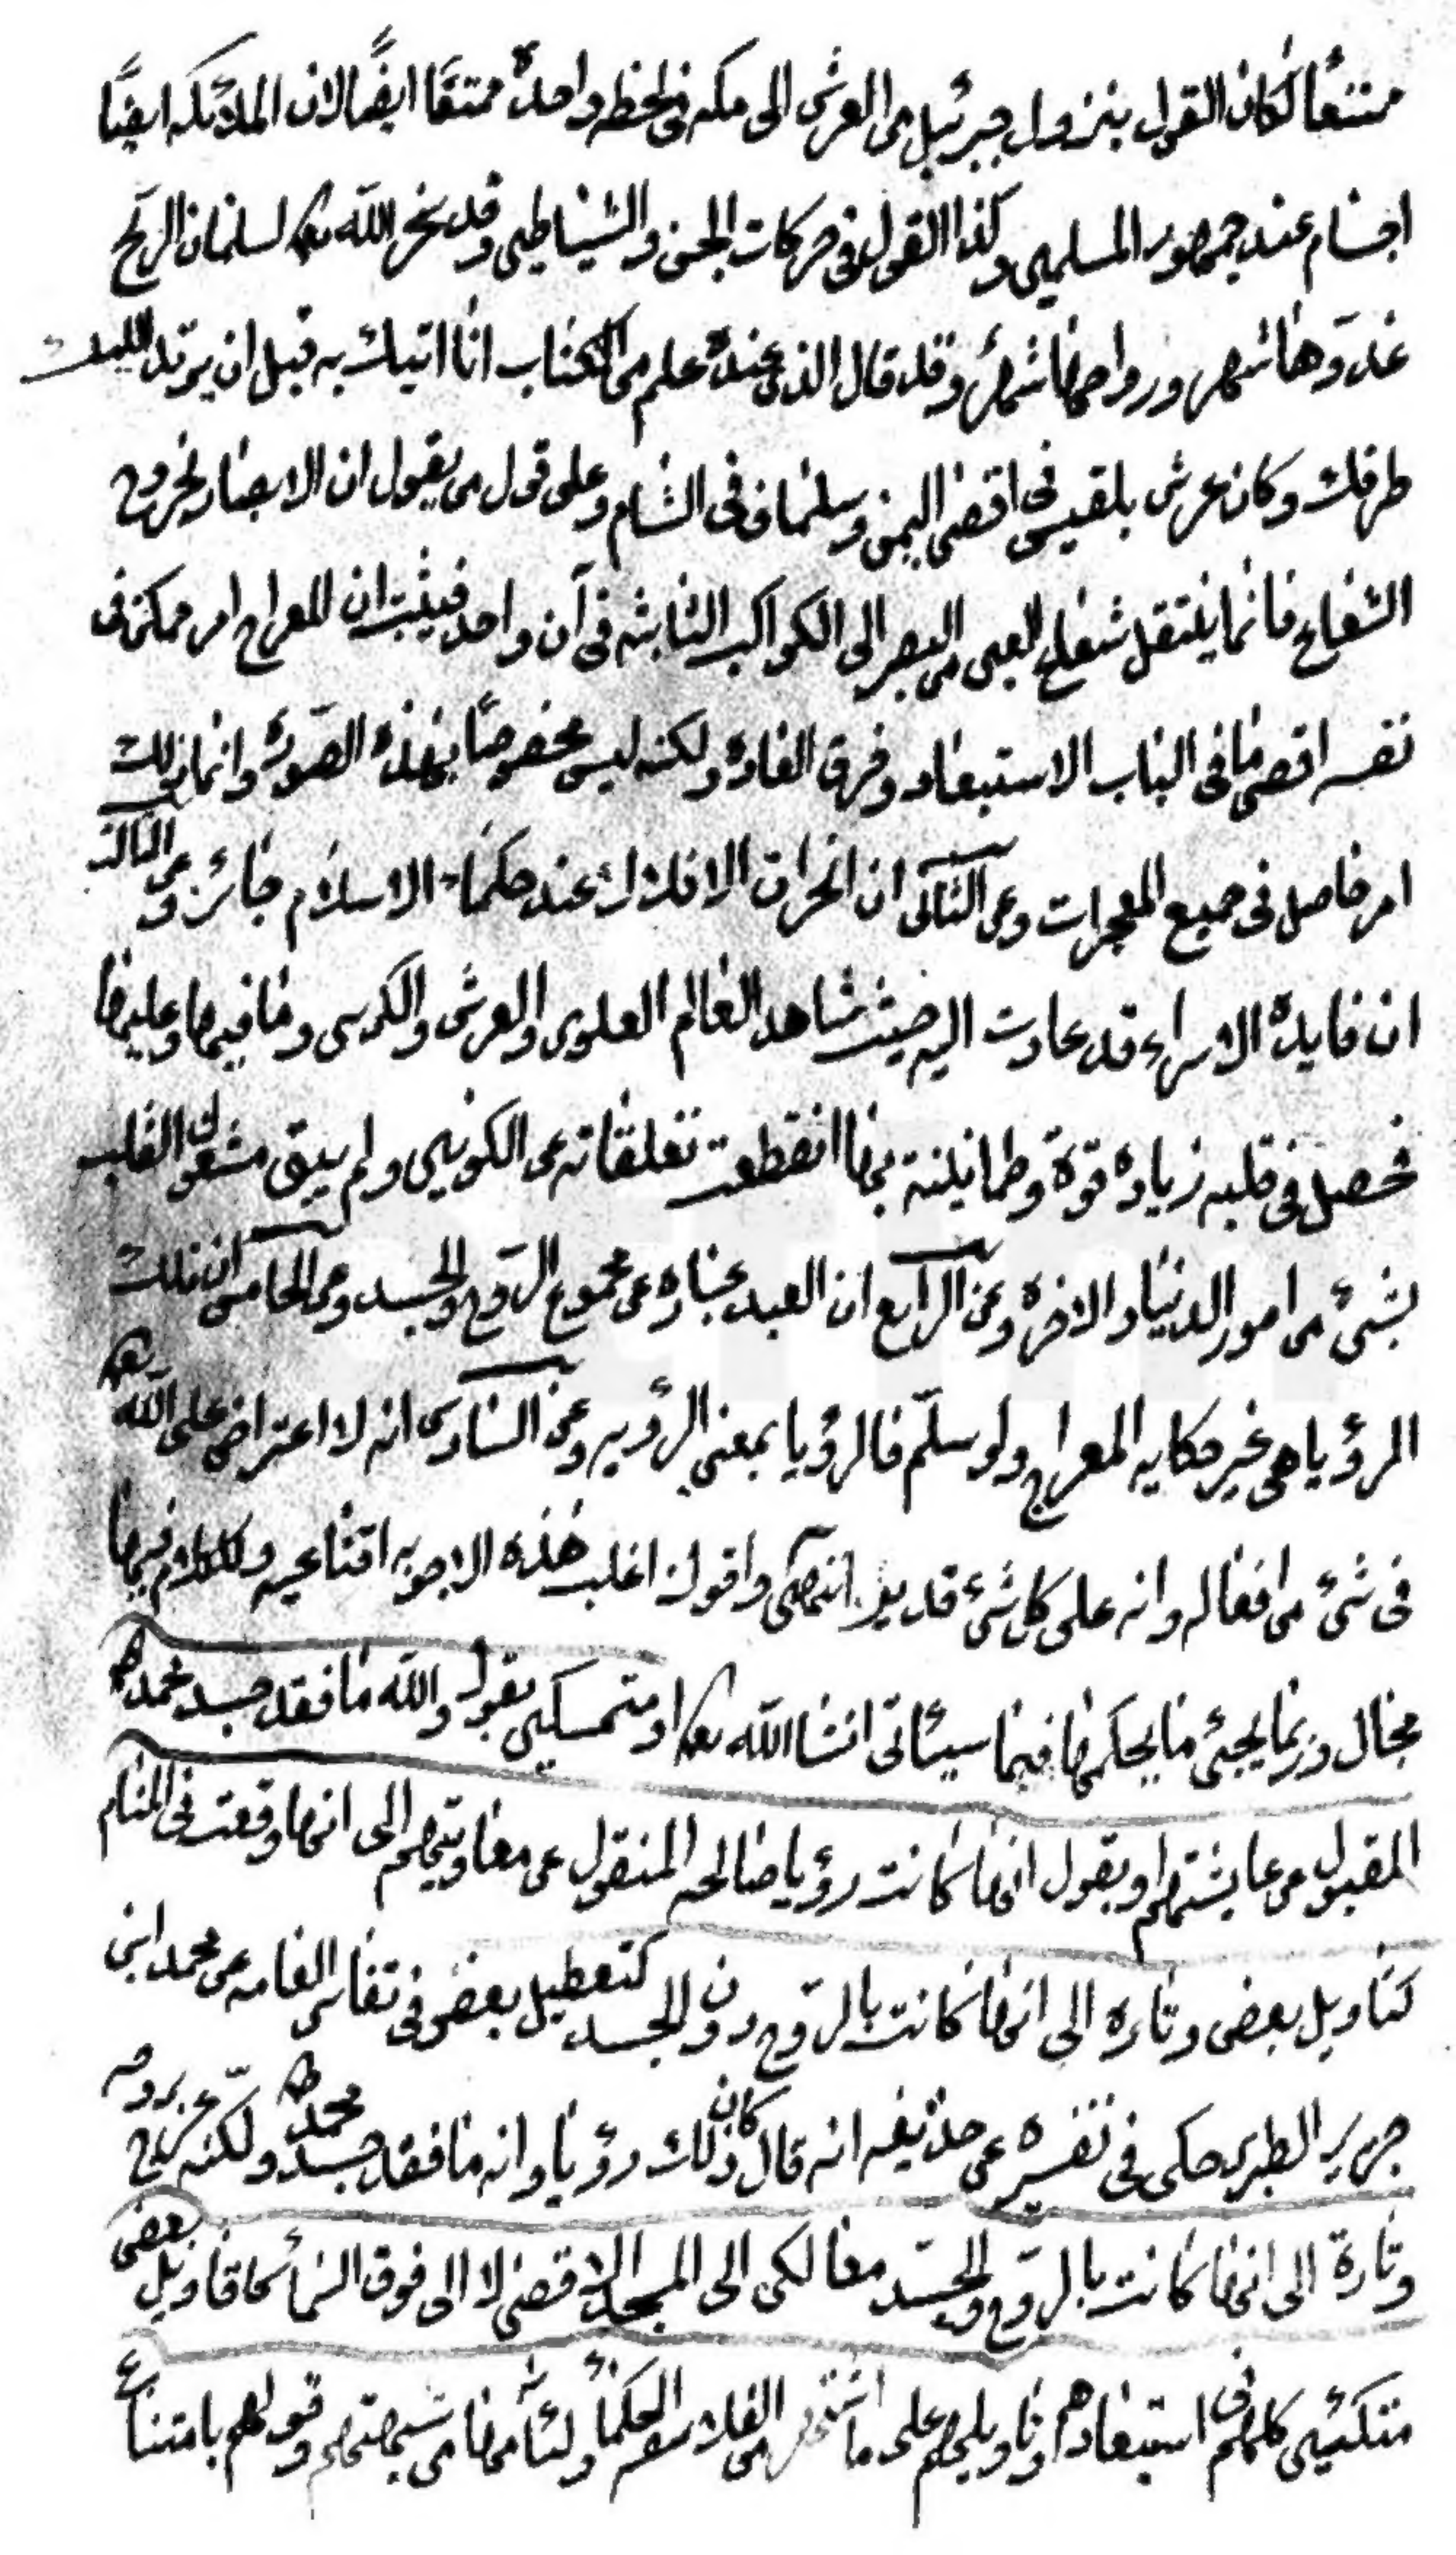 ممتنعاً لكان القول بنزول جبرئيل من العرش الى مكه فى لحظه واحدة ممتنعًا ايضًا لان الملائكه ايضًا
اجسام عند جمهور المسلمين وكذا القول فى حركات الجن والشياطين وقد سخر الله تعالى لسليمان الريح
غدوها شهر ورواحها شهر وقد قال الذى عنده علم من الكتاب انا اتيك به قبل ان يرتد اليك
طرفك وكان عرش بلقيس فى اقصى اليمن وسليمان فى الشام وعلى قول من يقول ان الابصار بخروج
الشعاع فانما ينتقل شعاع العين من البصر الى الكواكب الثابته فى آن واحد فيثبت ان المعراج امر ممكن فى
نفسه اقصى ما فى الباب الاستبعاد وخرق العادة ولكنه ليس مخصوصًا بهذه الصورة وانما ذلك
امر حاصل فى جميع المعجزات وعن الثانى ان انخراق الافلاك عند حكماء الاسلام جائز وعن الثالث
ان فايدة الاسراء قد عادت اليه حيث شاهد العالم العلوى والعرش والكرسى وما فيها وعليها
فحصل فى قلبه زيادة قوة وطمانينة بها انقطعت تعلقاته عن الكونين ولم يبق مشغول القلب
بشئ من امور الدنيا والاخرة وعن الرابع ان العبد عبارة عن مجموع الروح والجسد وعن الخامس ان تلك
الرؤيا هى غير حكايه المعراج ولو سلّم فالرؤيا بمعنى الرؤيه وعن السادس انه لا اعتراض على الله تعالى
فى شئ من افعاله وانه على كل شئ قدير انتهى واقول اغلب هذه الاجوبه اقناعيه وللكلام فيها
مجال وربما يجئ ما يحكمها فيما سيئاتى انشا الله تعالى او متمسكين بقول والله ما فقد جسد محمد ص
المقبول من عايشتهم او بقول انها كانت رؤيا صالحه المنقول عن معاويتهم الى انها وقعت فى المنام
كتاويل بعض وتاره الى انها كانت بالروح دون الجسد كتعطيل بعض فى تفاسير العامه عن محمد ابن
جرير الطبرى حكى فى تفسيره عن حذيفه انه قال كان ذلك رؤيا وانه ما فقد جسد محمد ص ولكنه عرج بروحه
وتارة الى انها كانت بالروح والجسد معا لكن الى المسجد الاقصى لا الى فوق السماء كاقاويل بعض
متكئين كلهم فى استبعادهم او تاويلهم على ما اشتهر من الفلاسفه الحكماء ولئامها من شبهتهم وقولهم بامتناع